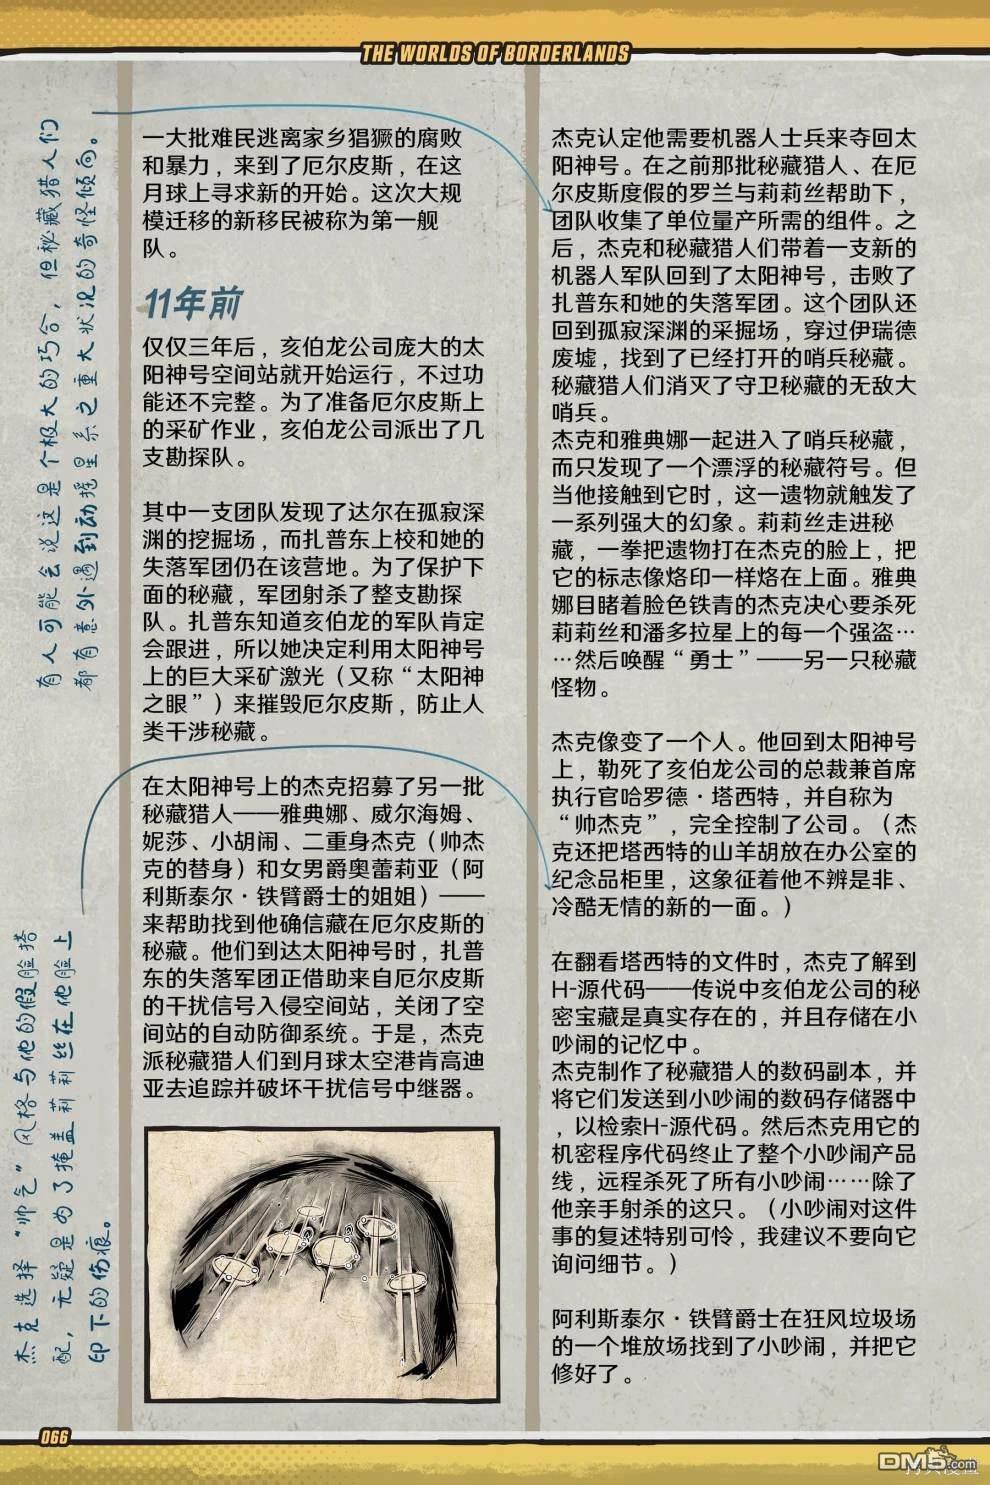 THE WORLDS OF BORDERLANDS
有人可能会说这是个极大的巧合，但秘藏猎人们
都有意外遇到动摇星系之重大状况的奇怪倾向。
一大批难民逃离家乡猖獗的腐败
和暴力，来到了厄尔皮斯，在这
月球上寻求新的开始。这次大规
模迁移的新移民被称为第一舰
队。
11年前
仅仅三年后，亥伯龙公司庞大的太
阳神号空间站就开始运行，不过功
能还不完整。为了准备厄尔皮斯上
的采矿作业，亥伯龙公司派出了几
支勘探队。
其中一支团队发现了达尔在孤寂深
渊的挖掘场，而扎普东上校和她的
失落军团仍在该营地。为了保护下
面的秘藏，军团射杀了整支勘探
队。扎普东知道亥伯龙的军队肯定
会跟进，所以她决定利用太阳神号
上的巨大采矿激光（又称“太阳神
之眼”）来摧毁厄尔皮斯，防止人
类干涉秘藏。
在太阳神号上的杰克招募了另一批
秘藏猎人——雅典娜、威尔海姆、
妮莎、小胡闹、二重身杰克（帅杰
克的替身）和女男爵奥蕾莉亚（阿
利斯泰尔·铁臂爵士的姐姐）——
来帮助找到他确信藏在厄尔皮斯的
秘藏。他们到达太阳神号时，扎普
东的失落军团正借助来自厄尔皮斯
的干扰信号入侵空间站，关闭了空
间站的自动防御系统。于是，杰克
派秘藏猎人们到月球太空港肯高迪
亚去追踪并破坏干扰信号中继器。
杰克选择“帅气”风格与他的假脸搭
配，无疑是为了掩盖莉莉丝在他脸上
印下的伤痕。
杰克认定他需要机器人士兵来夺回太
阳神号。在之前那批秘藏猎人、在厄
尔皮斯度假的罗兰与莉莉丝帮助下，
团队收集了单位量产所需的组件。之
后，杰克和秘藏猎人们带着一支新的
机器人军队回到了太阳神号，击败了
扎普东和她的失落军团。这个团队还
回到孤寂深渊的采掘场，穿过伊瑞德
废墟，找到了已经打开的哨兵秘藏。
秘藏猎人们消灭了守卫秘藏的无敌大
哨兵。
杰克和雅典娜一起进入了哨兵秘藏，
而只发现了一个漂浮的秘藏符号。但
当他接触到它时，这一遗物就触发了
一系列强大的幻象。莉莉丝走进秘
藏，一拳把遗物打在杰克的脸上，把
它的标志像烙印一样烙在上面。雅典
娜目睹着脸色铁青的杰克决心要杀死
莉莉丝和潘多拉星上的每一个强盗…
…然后唤醒“勇士”——另一只秘藏
怪物。
杰克像变了一个人。他回到太阳神号
上，勒死了亥伯龙公司的总裁兼首席
执行官哈罗德·塔西特，并自称为
“帅杰克”，完全控制了公司。（杰
克还把塔西特的山羊胡放在办公室的
纪念品柜里，这象征着他不辨是非、
冷酷无情的新的一面。）
在翻看塔西特的文件时，杰克了解到
H-源代码——传说中亥伯龙公司的秘
密宝藏是真实存在的，并且存储在小
吵闹的记忆中。
杰克制作了秘藏猎人的数码副本，并
将它们发送到小吵闹的数码存储器中
，以检索H-源代码。然后杰克用它的
机密程序代码终止了整个小吵闹产品
线，远程杀死了所有小吵闹……除了
他亲手射杀的这只。（小吵闹对这件
事的复述特别可怜，我建议不要向它
询问细节。）
阿利斯泰尔·铁臂爵士在狂风垃圾场
的一个堆放场找到了小吵闹，并把它
修好了。
066
DM5.com